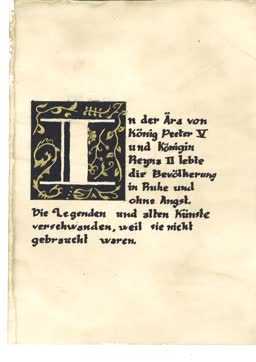 In der Ära von
König Peeter V
und Königin
Reyna II lebte
die Bevölkerung
in Ruhe und
ohne Angst.
Die Legenden und alten Künste
verschwanden, weil sie nicht
gebraucht waren.